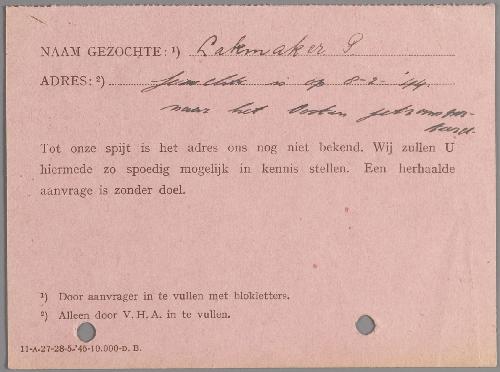 NAAM GEZOCHTE: ¹) Lakmaker P.
ADRES: ²) Gemelde is op 8-2-'44
naar het Oosten getranspor-
teerd.
Tot onze spijt is het adres ons nog niet bekend. Wij zullen U
hiermede zo spoedig mogelijk in kennis stellen. Een herhaalde
aanvrage is zonder doel.
¹) Door aanvrager in te vullen met blokletters.
²) Alleen door V. H. A. in te vullen.
11-A-27-28-5-'45-10.000-D. B.